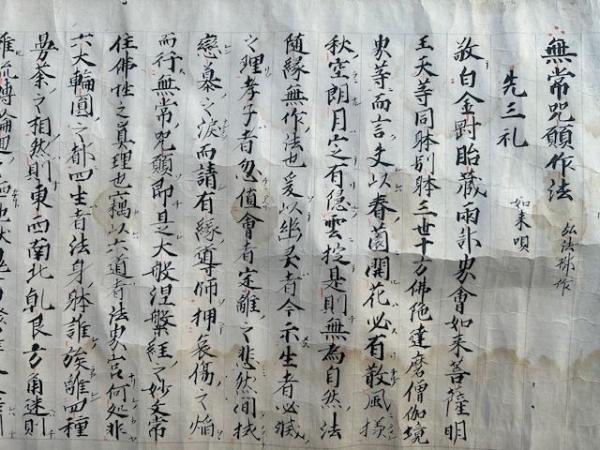 無常咒願作法
弘法
先三礼
如来唄
敬白金剛胎蔵両部界會如来菩薩明
王天等同躰別躰三世十方佛陀達磨僧伽境
界等而言夫以春薗開花必有散風
秋空朗月定有隠雲是則無為自然法
随縁無作法也爰以者今示生者必滅
之理孝子者忽値會者定離之悲然間拭
戀慕之涙而請有縁導師押哀傷之焔
而行無常咒願即是大般涅槃経之妙文常
住佛性之真理也竊以六道者法界宮何処非
六大輪圓之都四生者法身躰誰離四種
曼荼之相然則東西南北乹艮方角迷則